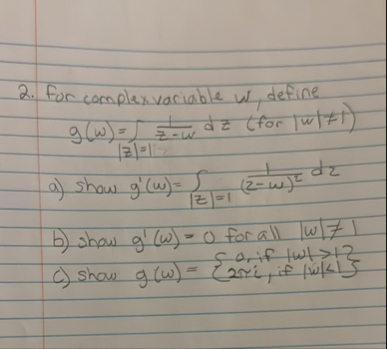 2. For complex variable w, define
g(w) = ∫_{|z|=1} 1/(z-w) dz (for |w|≠1)
a) show g'(w) = ∫_{|z|=1} 1/(z-w)² dz
b) show g'(w) = 0 for all |w|≠1
c) show g(w) = { 0, if |w|>1
2πi, if |w|<1 }